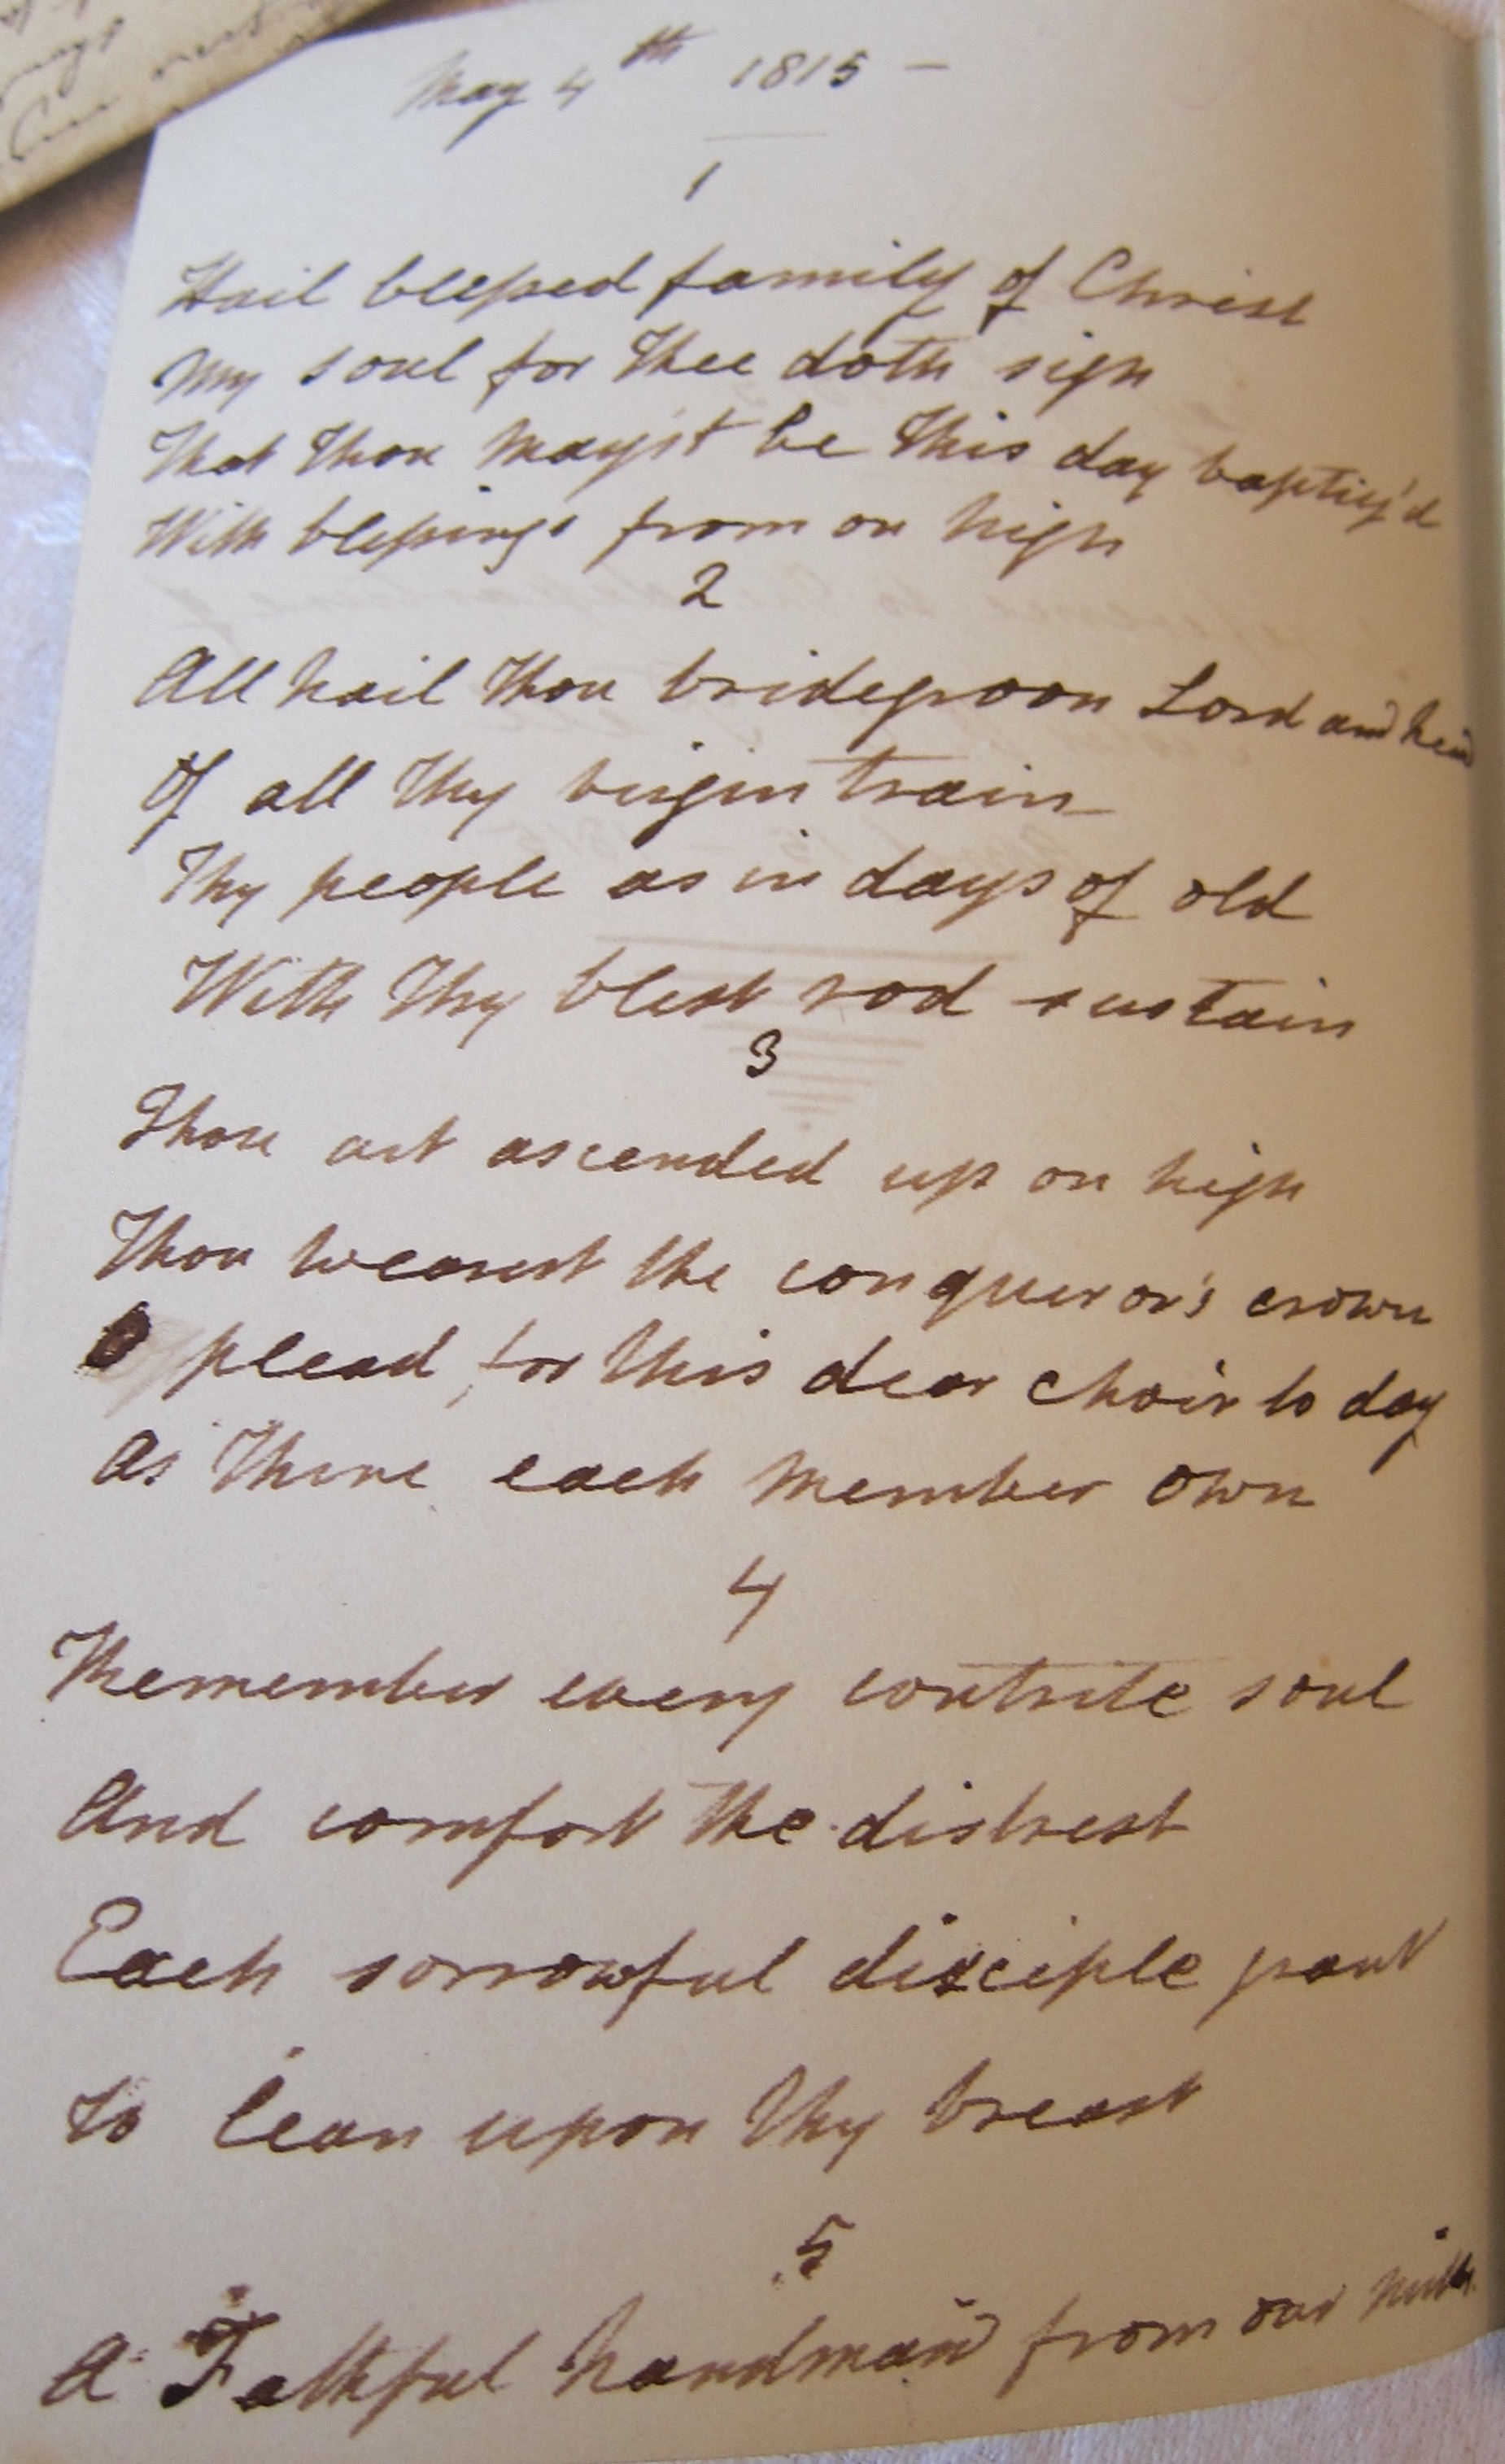 May 4th 1815 —
1
Hail blessed family of Christ
My soul for Thee doth sigh
That Thou mayst be this day baptiz'd
With blessings from on high
2
All hail Thou bridegroom Lord and head
Of all Thy virgin train
Thy people as in days of old
With Thy blest rod sustain
3
Thou art ascended up on high
Thou wearest the conqueror's crown
O plead for this dear choir to day
As Thine each member own
4
Remember every contrite soul
And comfort the distrest
Each sorrowful disciple pant
to lean upon Thy breast
5
A Faithful handmaid from our